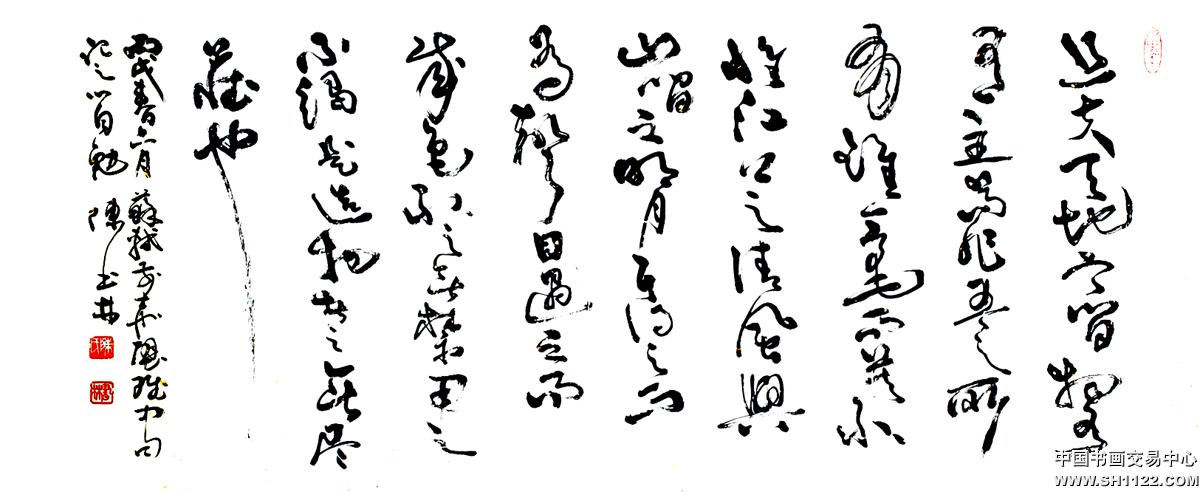 且夫天地之間物各
有主茍非吾之所
有雖一毫而莫取
惟江上之清風與
山間之明月耳得之而
為聲目遇之而
成色取之無禁用之
不竭是造物者之無尽
藏也
丙戌春六月蘇軾前赤壁賦中句
記之以自勉 陳
中国书画交易中心
WWW.SH1122.COM